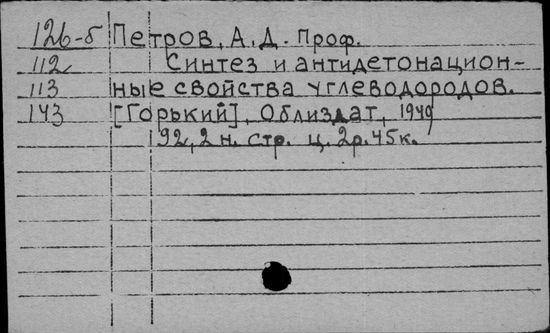 126-б Петров, А.Д. Проф.
112 Синтез и антидетонацион-
113 ные свойства углеводородов.
143 [Горький], Облиздат, 1949
92, 2 н. стр. ц. 2р. 45к.